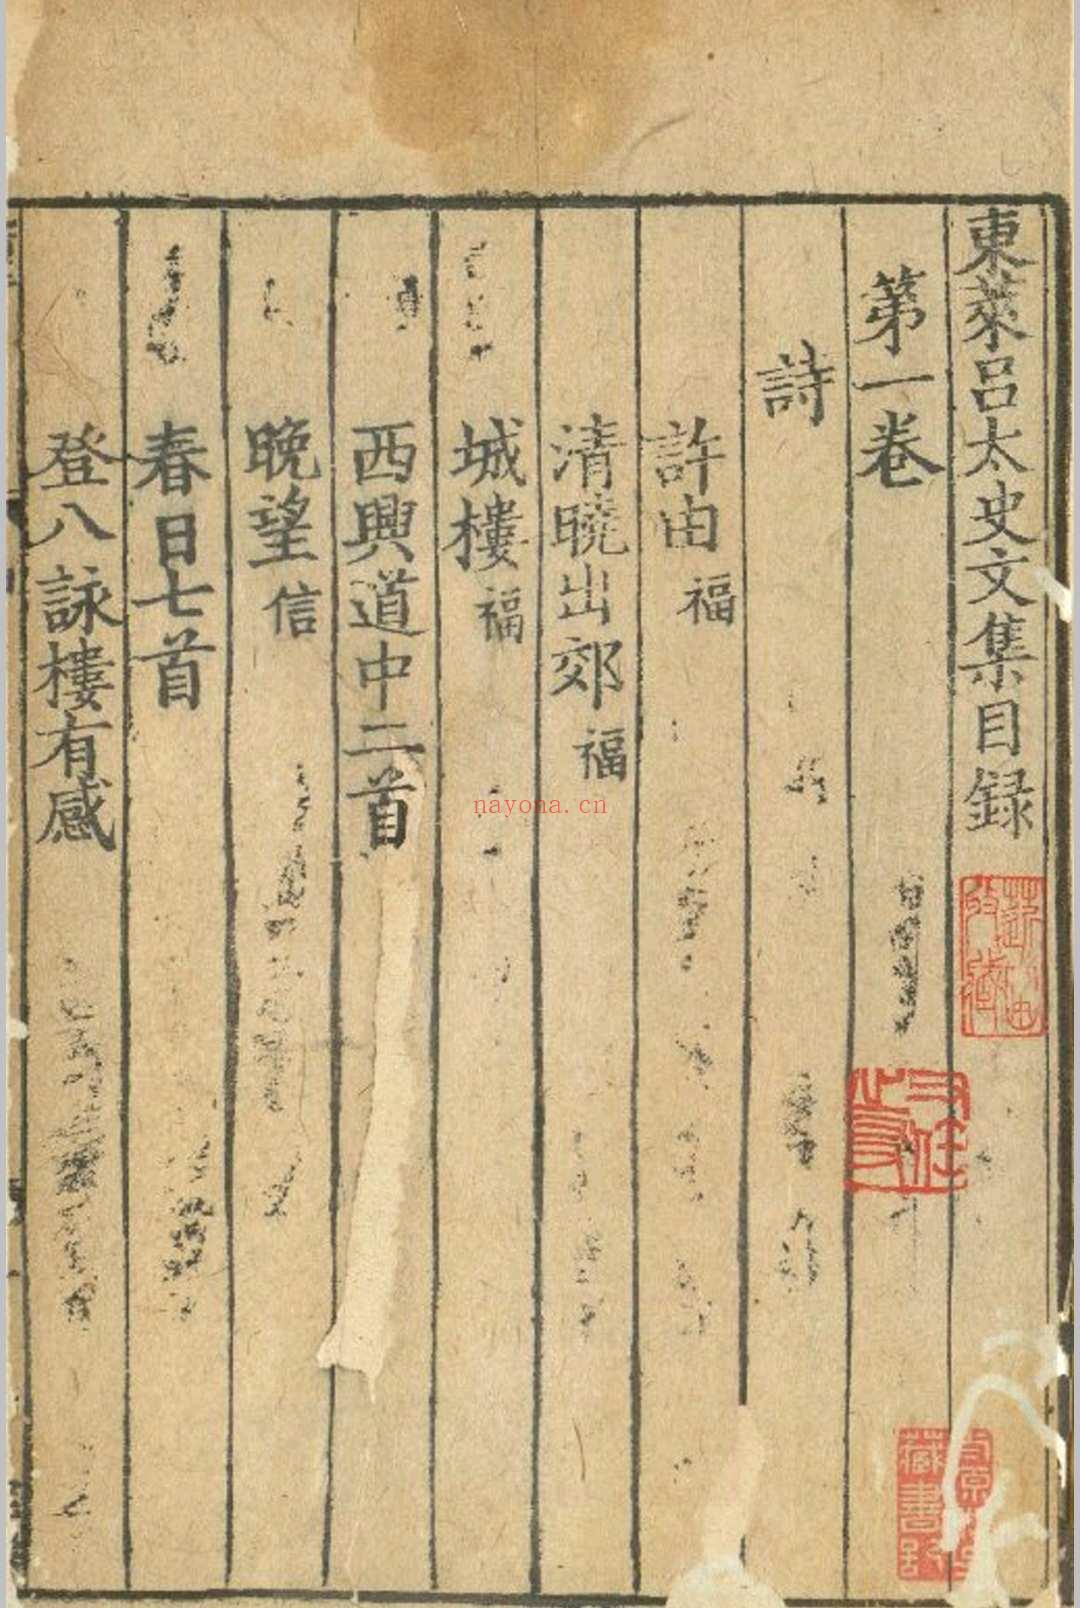 東萊呂太史文集目録
第一卷
詩
許由福
清曉出郊福
城樓福
西興道中二首
晚望信
春日七首
登八詠樓有感
nayona.cn
藏書